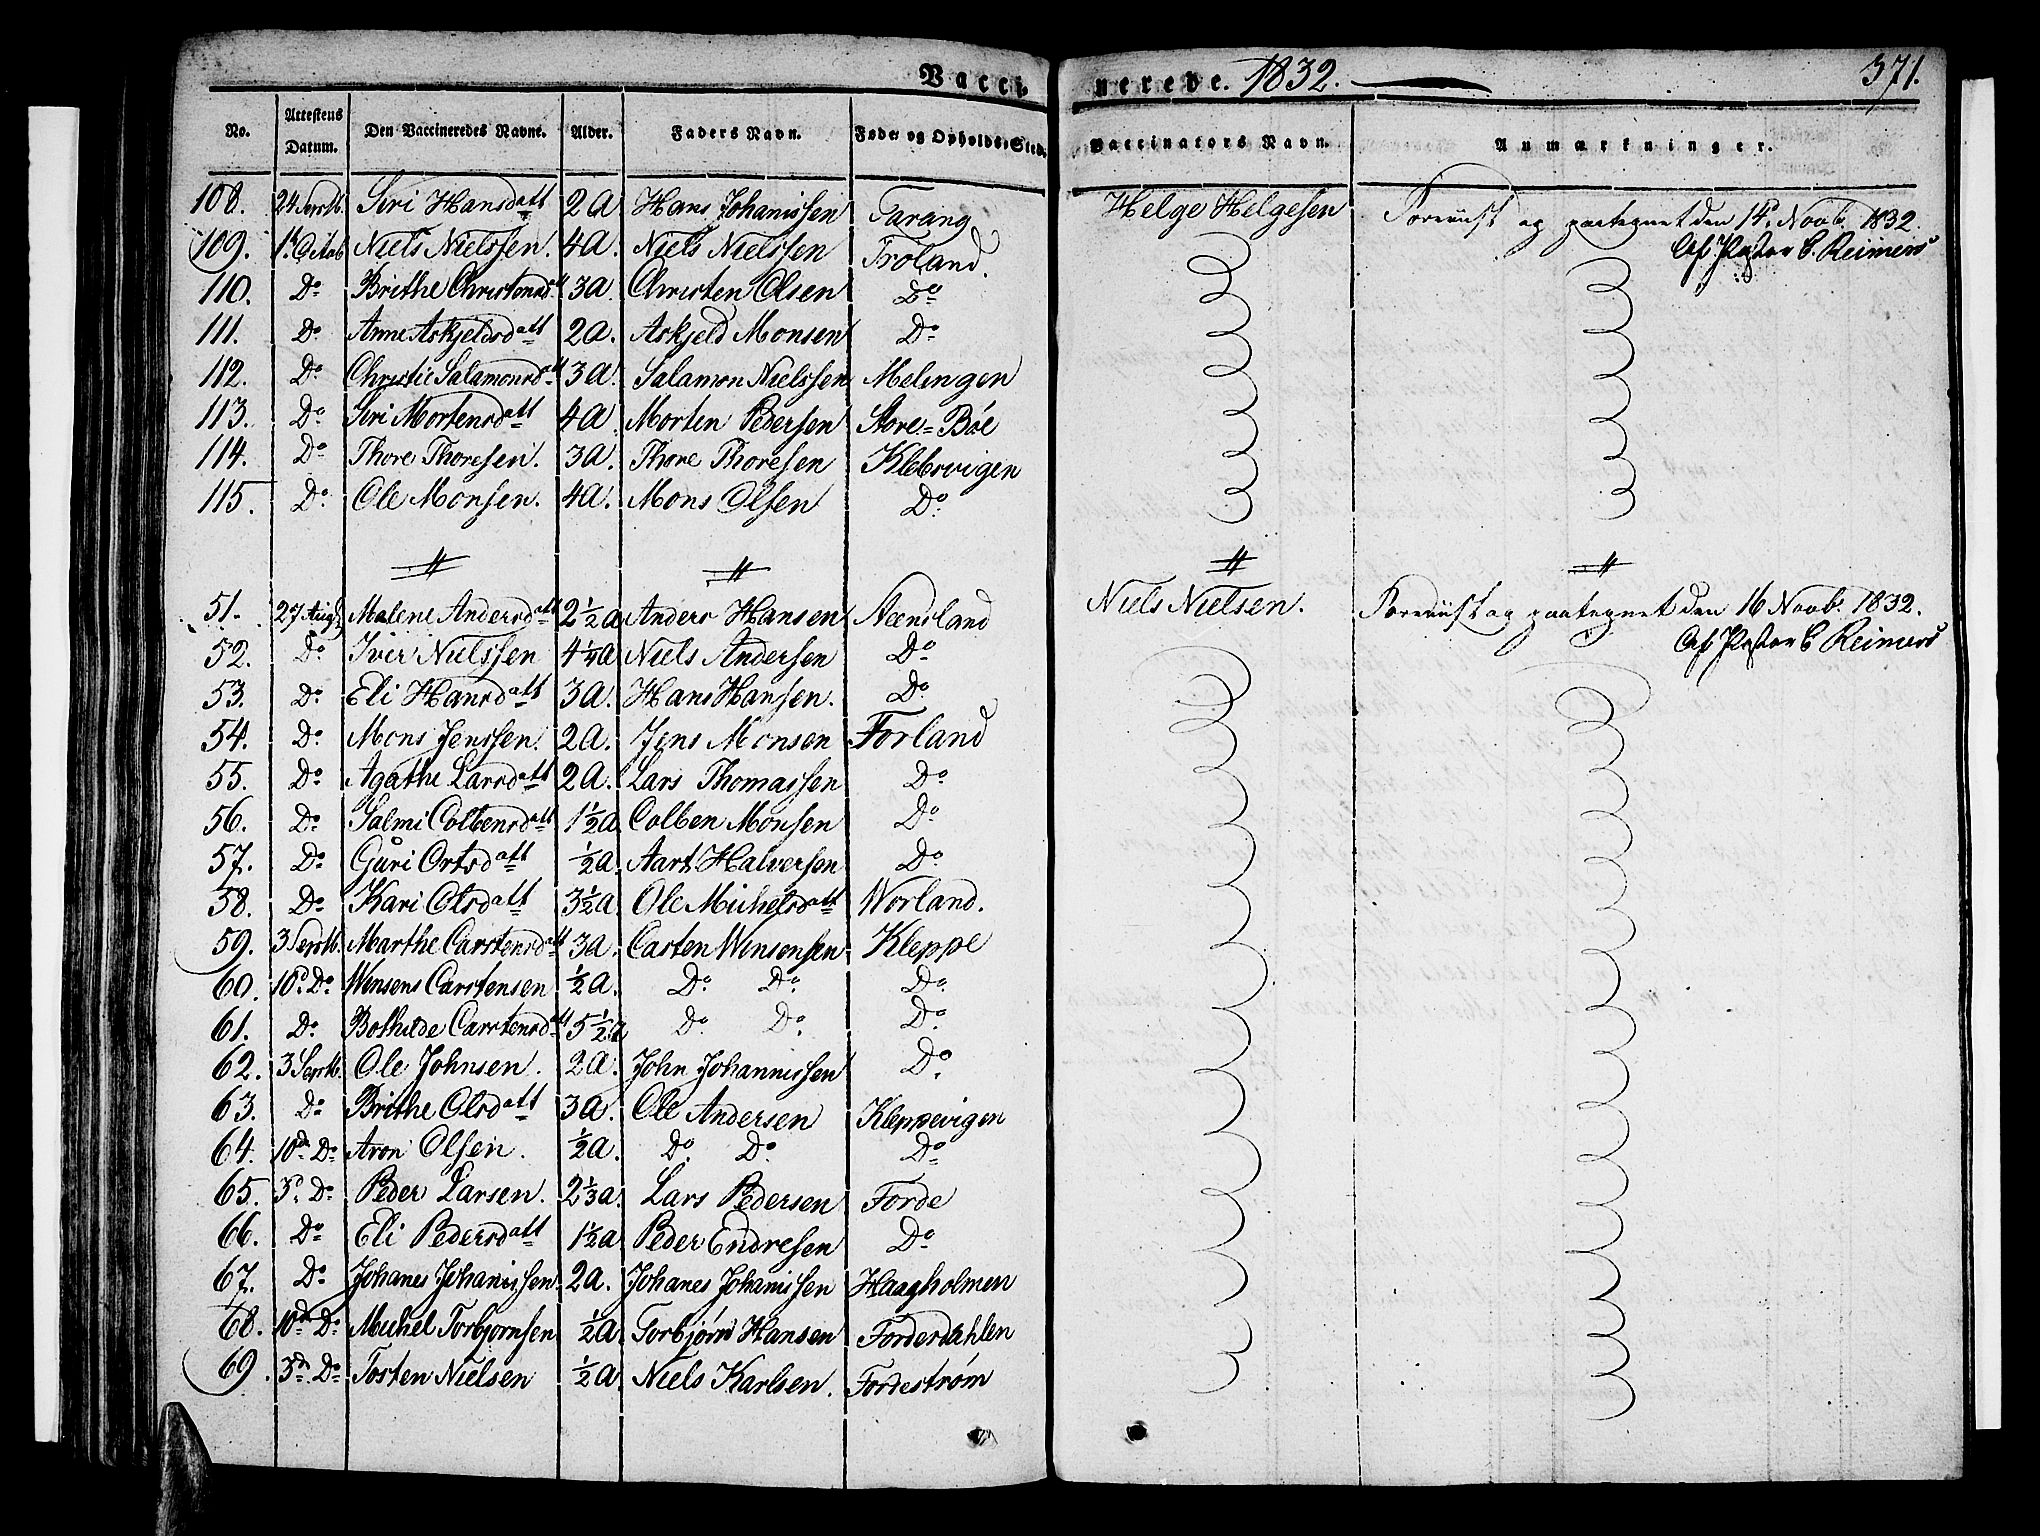 Vaccinerede. 1832. 371.
No. Attestens Datum. Den Vaccineredes Navne. Alder. Faders Navn. Føde- og Opholds-Sted. Vaccinators Navn. Anmærkninger.
108. 24 Septb. Siri Hansdatt 2a Hans Johanissen Tarang Helge Helgesen Foreviist og paategnet den 14d Novb. 1832.
Af Pastor C. Reimers
109. 1t Octob Niels Nielssen. 4a. Niels Nielssen Troland.
110. Do Brithe Christensd 3a Christen Olsen Do
111. Do Anne Askjeldsdatt 2a. Askjeld Monsen Do
112. Do Christie Salamonsdatt 3a. Salamon Nielssen Melingen
113. Do Siri Mortensdatt 4a Morten Pedersen Store-Böe
114. Do Thore Thoresen. 3a. Thore Thoresen Klebsvigen
115. Do Ole Monsen. 4a. Mons Olsen Do
51. 27 Aug Malene Andersdatt 2½a Anders Hansen Steensland Niels Nielsen. Foreviist og paategnet den 16 Novb. 1832.
Af Pastor C Reimers
52. Do Iver Nielssen 4¼a Niels Andersen Do
53. Do Eli Hansdatt 3a. Hans Hansen. Do
54. Do Mons Jenssen. 2a. Jens Monsen Forland
55. Do Agathe Larsdatt 2a. Lars Thomassen Do
56. Do Salmi Colbensdatt 1½a Colben Monsen Do
57. Do Guri Ortsdatt ½a. Aart Halversen Do
58. Do Kari Olsdatt 3½a. Ole Michelsdatt Worland.
59. 3 Septb. Marthe Carstensdatt 3a. Casten Winsensen Kleppe
60. 10d Do Winsens Carstensen ½a. Do Do Do
61. Do Bothilde Carstensdatt 5½a Do Do Do
62. 3 Septb. Ole Johnsen. 2a. John Johannissen Do
63. Do Brithe Olsdatt 3a. Ole Andersen Kleppevigen
64. 10d Do Aron Olsen. ½a. Do Do Do
65. 3d Do Peder Larsen. 2⅓a. Lars Pedersen Forde
66. Do Eli Pedersdatt 1½a Peder Endresen Do
67. Do Johanes Johanissen 2a. Johanes Johanissen Haagholmen
68. 10d Do Michel Torbjornsen ½a Torbjørn Hansen Forderdahlen
69. 3d Do Tosten Nielsen ½a. Niels Karlsen. Fordestrøm